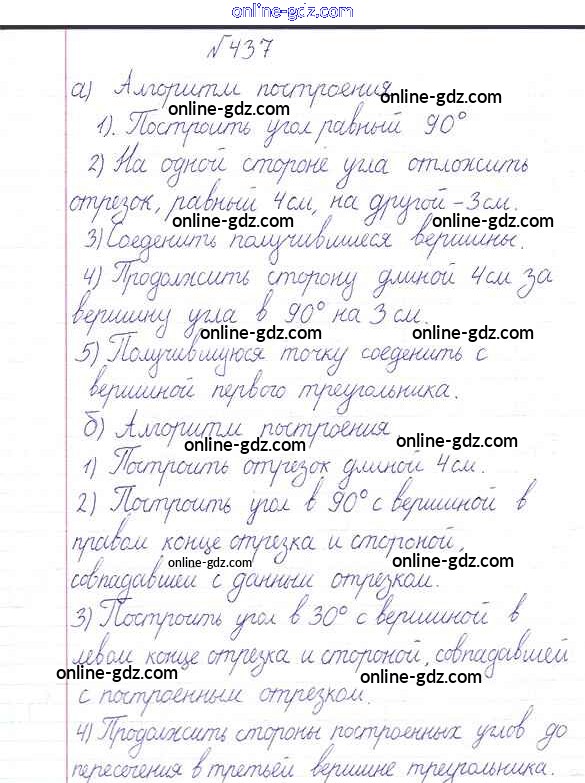 online-gdz.com
№437
а) Алгоритм построения
online-gdz.com
1). Построить угол равный 90°
online-gdz.com
2) На одной стороне угла отложить
отрезок, равный 4см, на другой -3см.
online-gdz.com
3) Соеденить получившиеся вершины.
online-gdz.com
4) Продолжить сторону длиной 4см за
вершину угла в 90° на 3см.
online-gdz.com
5) Получившуюся точку соеденить с
вершиной первого треугольника.
online-gdz.com
б) Алгоритм построения
online-gdz.com
1) Построить отрезок длиной 4см.
2) Построить угол в 90° с вершиной в
правом конце отрезка и стороной,
online-gdz.com
online-gdz.com
совпадавшей с данным отрезком.
3) Построить угол в 30° с вершиной в
левом конце отрезка и стороной, совпадавшей
online-gdz.com
online-gdz.com
с построенным отрезком.
4) Продолжить стороны построенных углов до
пересечения в третьей вершине треугольника.